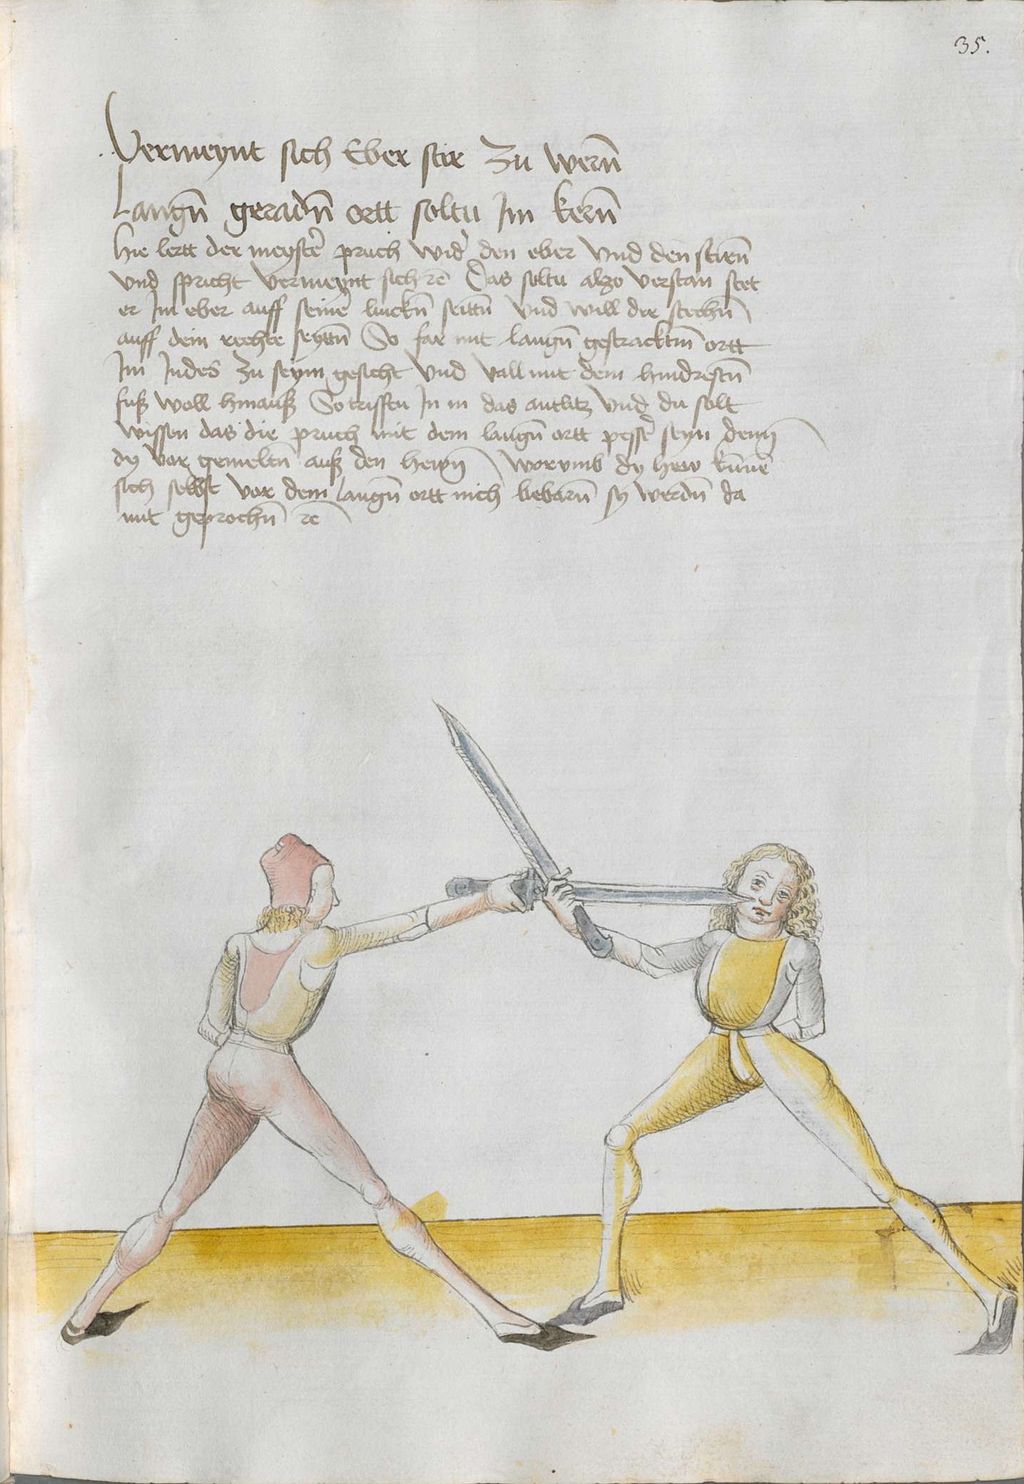 35.
Vermeynt sich Eber stir zu wern̄
Langn̄ geradn̄ ortt soltu Im kern̄
Hie lertt der meyster̄ pruch wid̄ den eber Vnd den stirn̄
vnd spricht vermeynt sich rc̄ Das soltu alzo verstan stet
er Im eber auff seiner̄ linckn̄ seittn̄ vnd will dir stechn̄
auff dein rechte seyttn̄ So far mit langn̄ gestracktm̄ ortt
Im Indes zu seym gesicht vnd vall mit dem hindrestn̄
fuß woll hinauß So triffstu In in das antlitz vnd du solt
wissen das die pruch mit dem langn̄ ortt pesser̄ seyn denn
dy vor gemeltn̄ auß den hewn̄ worvmb dy hew kunnē
sich selbst vor dem langn̄ ortt nich bebarn̄ sy werdn̄ da
mit geprochn̄ rc̄